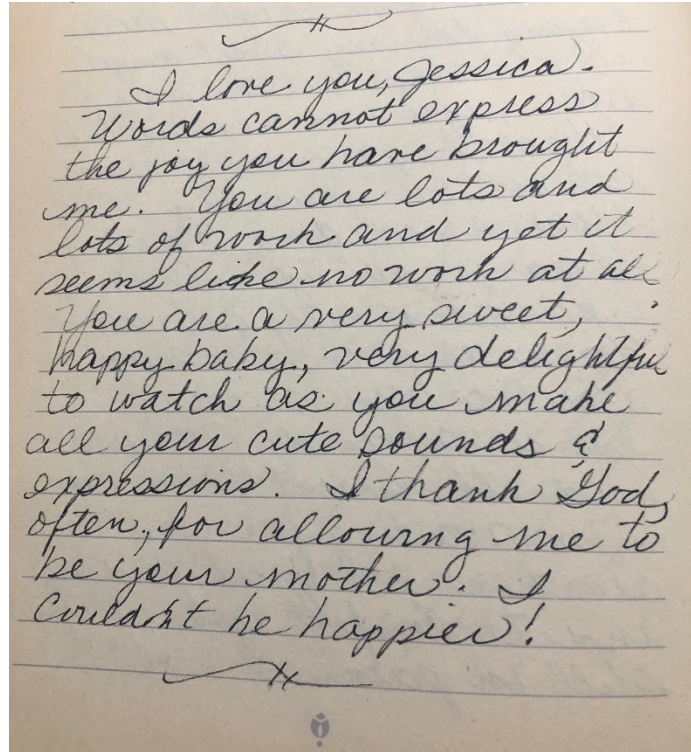 I love you, Jessica.
Words cannot express
the joy you have brought
me. You are lots and
lots of work and yet it
seems like no work at all
You are a very sweet,
happy baby, very delightful
to watch as you make
all your cute sounds &
expressions. I thank God,
often, for allowing me to
be your mother. I
Couldn't be happier!